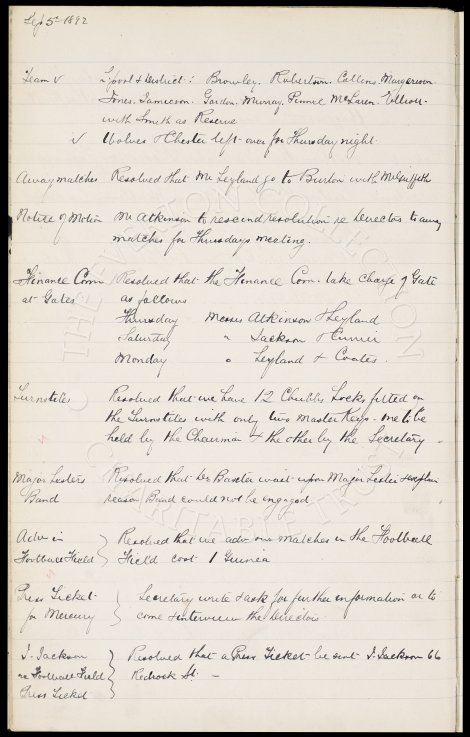 Sep 5th 1892
Team v L'pool & District : Browley. Robertson. Collins. Margerison.
Jones. Jamieson. Gordon. Murray. Pinnell. McLaren. Elliott
with Smith as Reserve
v Wolves & Chester left over for Thursday night
Away matches Resolved that Mr Leyland go to Burton with Mr Griffith
Notice of Motion Mr Atkinson to rescind resolution re Directors to away
matches for Thursdays meeting.
Finance Com Resolved that the Finance Com. take Charge of Gate
at Gates as follows
Thursday Messrs Atkinson & Leyland
Saturday " Jackson & Currier
Monday " Leyland & Coates.
Turnstiles Resolved that we have 12 Chubbs Locks fitted on
the Turnstiles with only two Master Keys - one to be
held by the Chairman & the other by the Secretary -
Major Lesters Resolved that Dr Baxter wait upon Major Lester & explain
Band reason Band could not be engaged
Adv in Resolved that we adv our matches in the Football
Football Field Field cost 1 Guinea
Press Ticket Secretary write & ask for further information or to
for Mercury come & interview the Directors
J. Jackson Resolved that a Press Ticket be sent J. Jackson 66
re Football Field Redrock St. -
Press Ticket
THE EVERTON COLLECTION
CHARITABLE TRUST